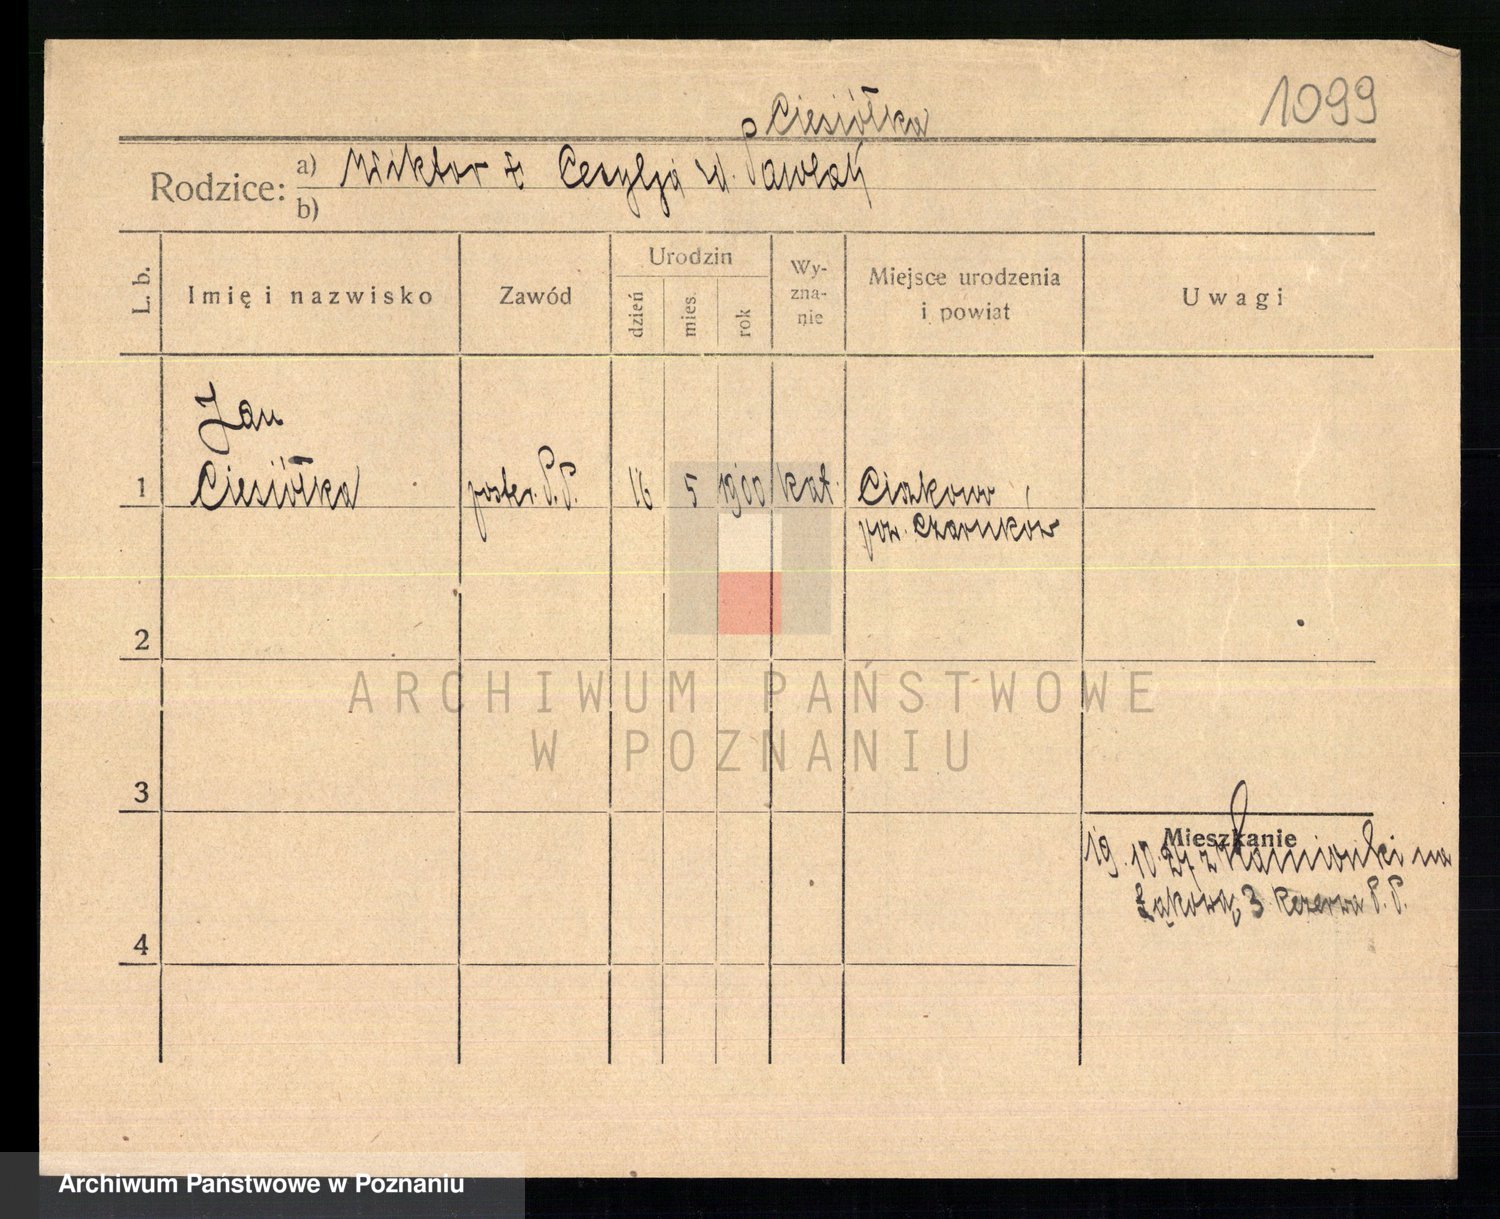 1099
Ciesiółka
Rodzice: a) Wiktor i Cecylja Pawlak
b)
L. b. Imię i nazwisko Zawód Urodzin dzień mies. rok Wy-zna-nie Miejsce urodzenia i powiat Uwagi
Jan
1 Ciesiółka poster. P.P. 16 5 1900 kat. Ciszkowo
pow. Czarnków
2
ARCHIWUM PAŃSTWOWE
W POZNANIU
3
Mieszkanie
19.10.27 z Kamionki na
Łąkową 3 Rezerwa P.P.
4
Archiwum Państwowe w Poznaniu